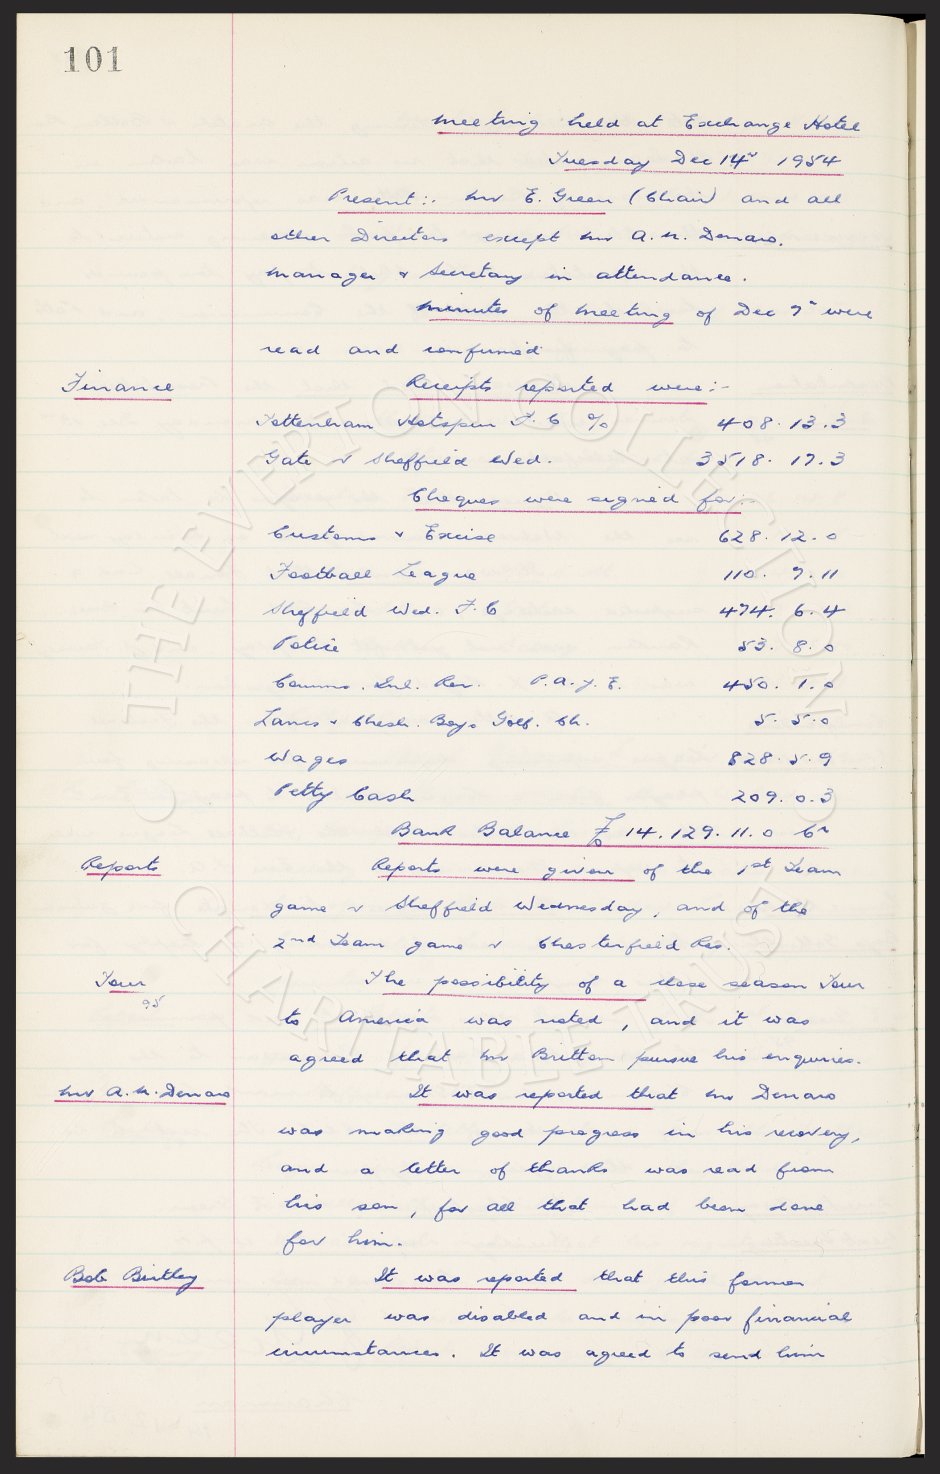 101
Meeting held at Exchange Hotel
Tuesday Dec 14th 1954
Present:- Mr E. Green (Chair) and all
other Directors except Mr A. M. Denaro.
Manager & Secretary in attendance.
Minutes of Meeting of Dec 7th were
read and confirmed
Finance
Receipts reported were:-
Tottenham Hotspur F. C % 408. 13. 3
Gate v Sheffield Wed. 3518. 17. 3
Cheques were signed for:-
Customs & Excise 628. 12. 0
Football League 110. 7. 11
Sheffield Wed. F. C 474. 6. 4
Police 53. 8. 0
Comms. Inl. Rev. P.A.Y.E. 450. 1. 0
Lancs & Chesh. Boys Golf. Ch. 5. 5. 0
Wages 828. 5. 9
Petty Cash 209. 0. 3
Bank Balance £ 14.129. 11. 0 Cr
Reports
Reports were given of the 1st Team
game v Sheffield Wednesday, and of the
2nd Team game v Chesterfield Res.
Tour
95
The possibility of a close season Tour
to America was noted, and it was
agreed that Mr Britton pursue his enquiries.
Mr A. M. Denaro
It was reported that Mr Denaro
was making good progress in his recovery,
and a letter of thanks was read from
his son, for all that had been done
for him.
Bob Birtley
It was reported that this former
player was disabled and in poor financial
circumstances. It was agreed to send him
THE EVERTON COLLECTION
CHARITABLE TRUST